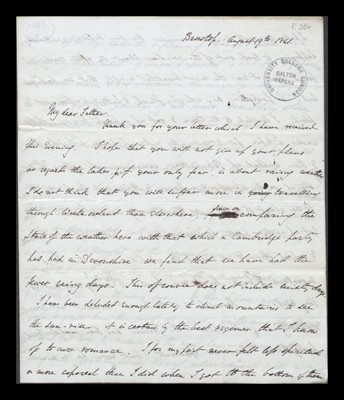 August 19th 1841.
UNIVERSITY COLLEGE LONDON
GALTON PAPERS
My dear Father
Thank you for your letter which I have received
this evening. I hope that you will not give up your plans
as regards the lakes, if your only fear is about rainy weather
I do not think that you will suffer more in travelling
through Westmoreland than elsewhere. since on comparing the
state of the weather here with that which a Cambridge party
has had in Devonshire we find that we have had the
fewer rainy days. This of course does not include misty days
I have been deluded enough lately to climb mountains to see
the sun-rise. it is certainly the best regimen that I know
of to cure romance. I for my part never felt less spiritual
or more corporeal than I did when I got to the bottom of them